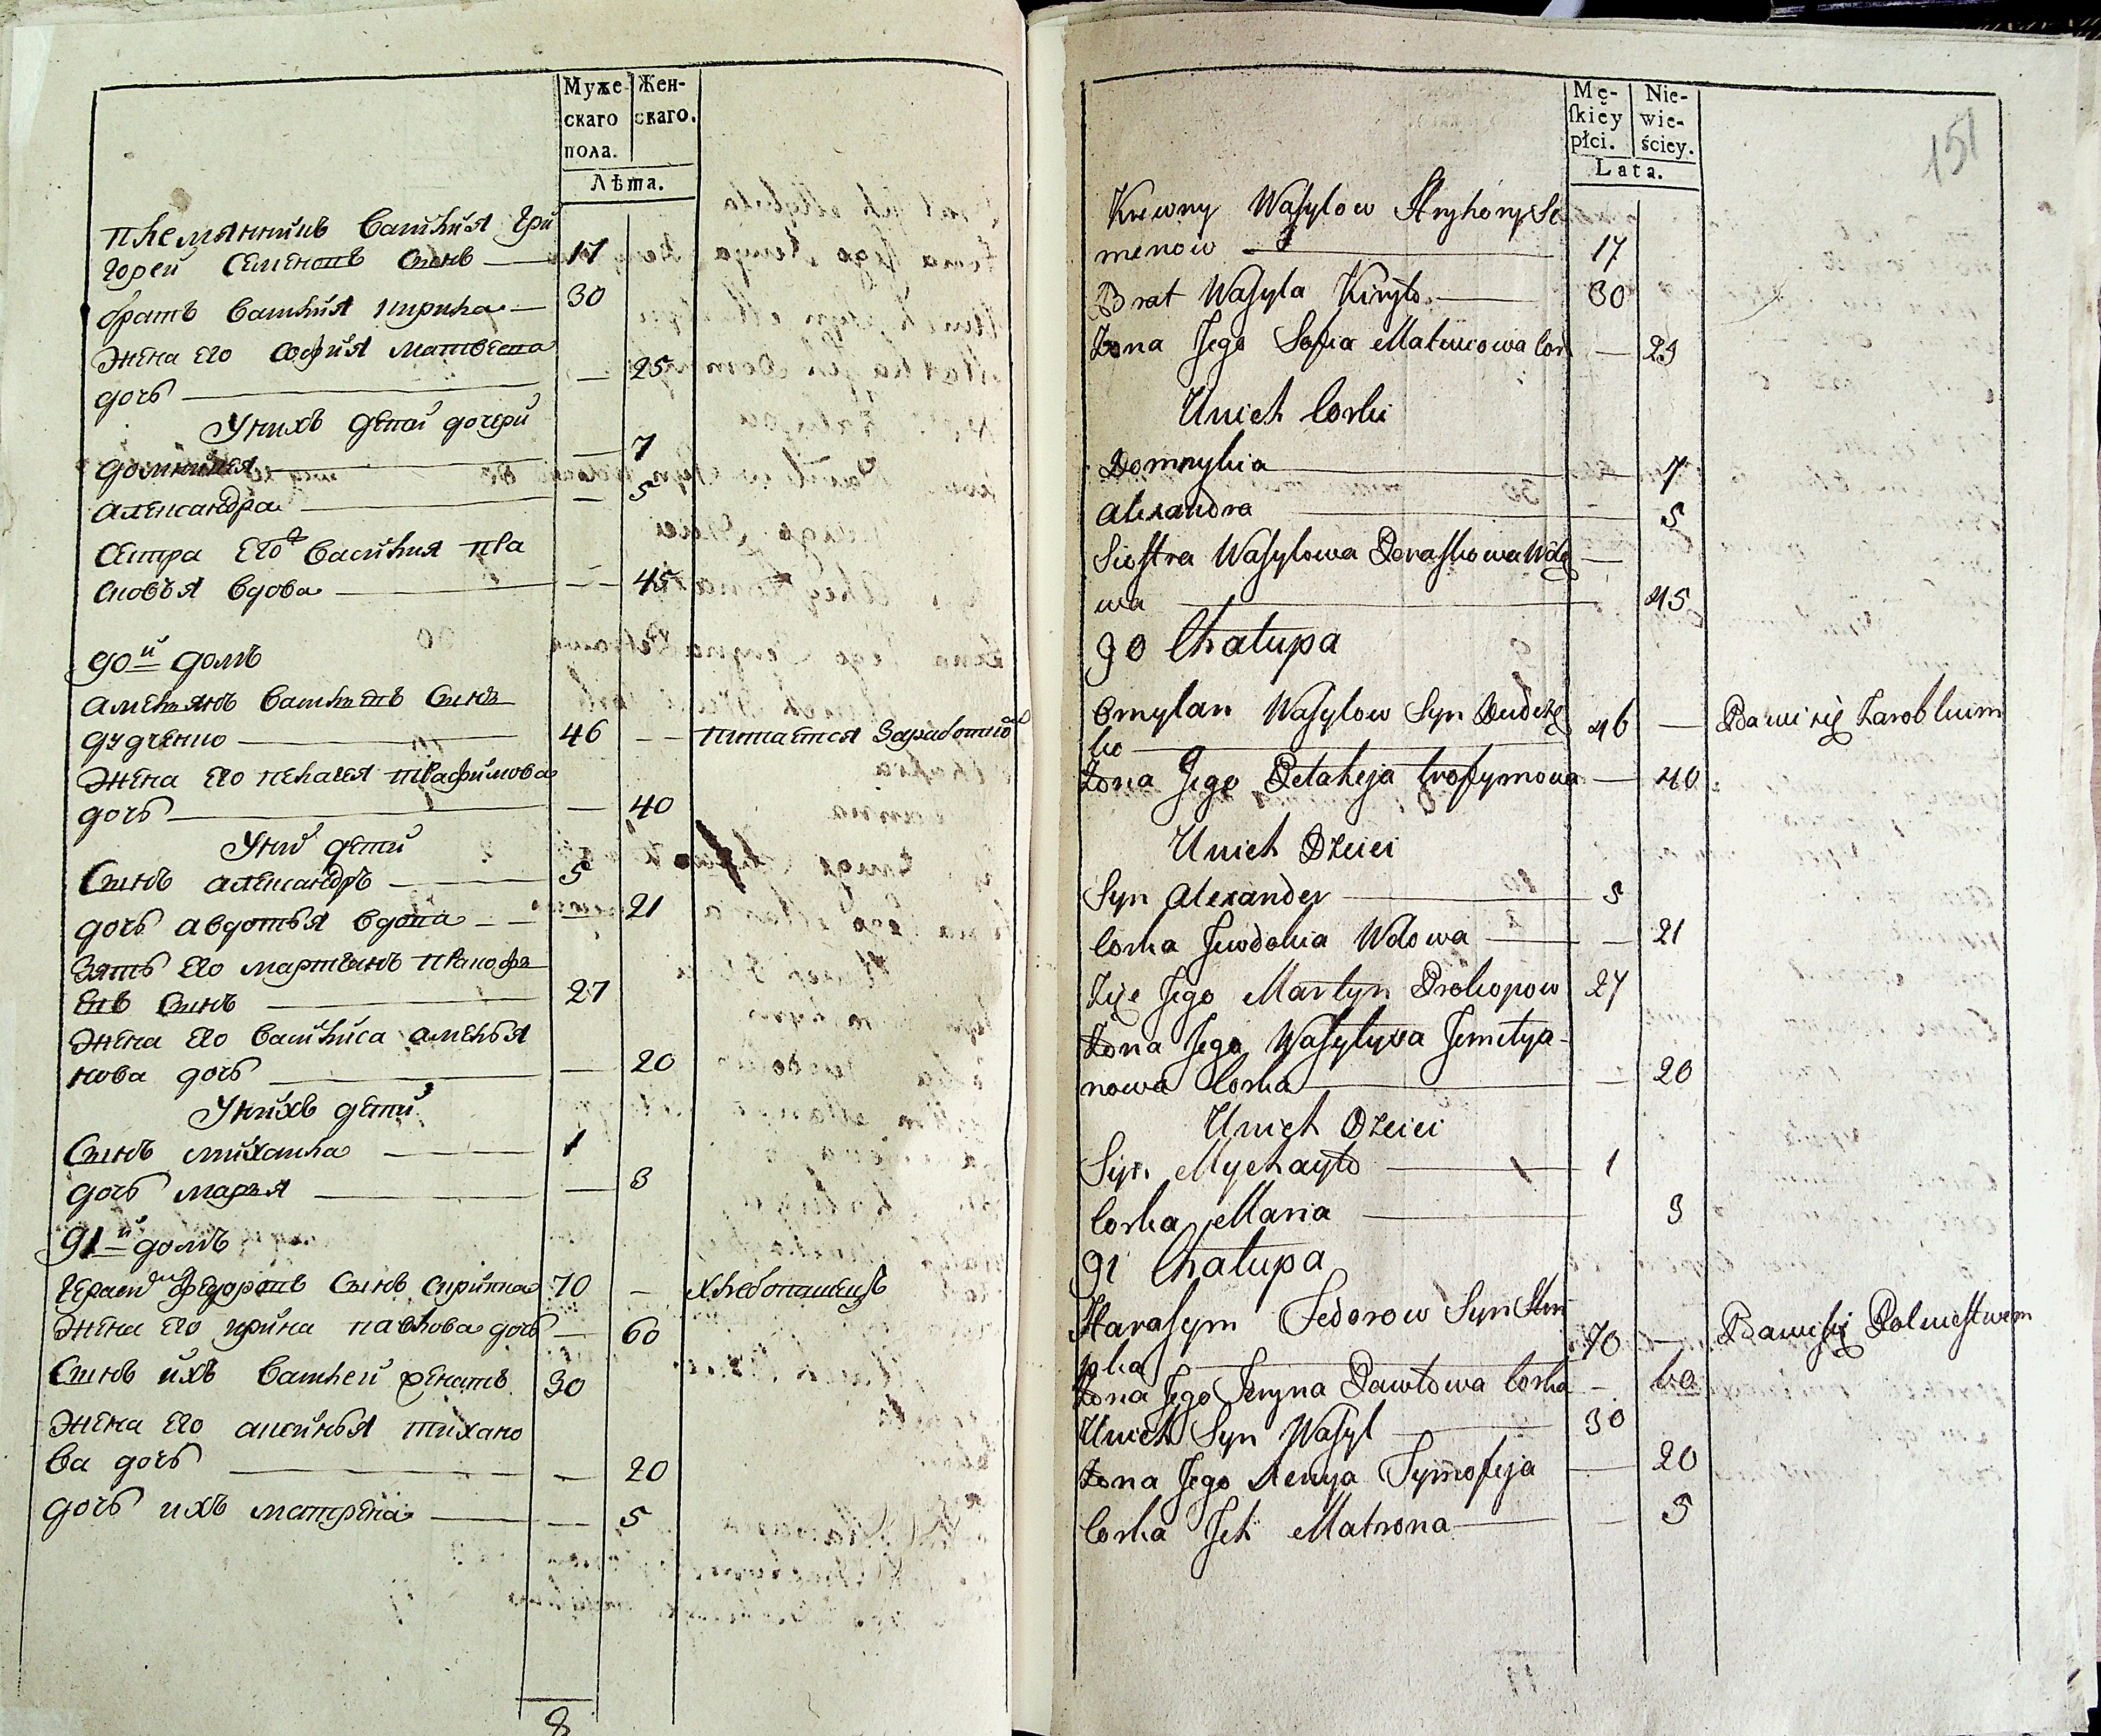 Муже- Жен-
скаго скаго.
пола.
Лѣта.
племянникъ василия Гри
горей семеновъ сынъ — 17
братъ василия кирила — 30
жена его софия матвеева
дочь — 25
У нихъ детей дочери
домникия — 7
александра — 5
сестра его василия пра
сковья вдова — 45
90й домъ
амельянъ василевъ сынъ
дудченко — 46 — питается заработко
жена его пелагея трафимова
дочь — 40
У них дети
Сынъ александръ — 5
дочь авдотья вдова — 21
зять его мартынъ пракофь
евъ сынъ — 27
жена его василиса амелья
нова дочь — 20
У нихъ дети
Сынъ михаила — 1
дочь марья — 3
91й домъ
герасим федоровъ сынъ скрипка 70 — хлебопашецъ
жена его ирина павлова дочь — 60
Сынъ ихъ василей женатъ 30
жена его аксинья тихано
ва дочь — 20
дочь ихъ матрена — 5
8
Mę- Nie-
ſkiey wie-
płci. ściey.
Lata.
151
Krewny Wasylow Hryhory Se
menow — 17
Brat Wasyla Kiryło — 30
Zona Jego Sofia Matwiowa Cor — 25
Unich Corki
Domnykia — 7
Alexandra — 5
Siostra Wasylowa Paraskowa Wdo
wa — 45
90 Chałupa
Omylan Wasylow Syn Dudcze
ko — 46 — Bawi się Zarobkiem
Zona Jego Pelaheja Trofymowa — 40
Unich Dzieci
Syn Alexander — 5
Corka Jewdokia Wdowa — 21
Zięć Jego Martyn Prokopow 27
Zona Jego Wasylyxa Jemelya-
nowa Corka — 20
Unich Dzieci
Syn Mychayło — 1
Corka Maria — 3
91 Chałupa
Harasym Fedorow Syn Skry
pka — 70 — Bawi się Rolnictwem
Zona Jego Jeryna Pawłowa Corka — 60
Unich Syn Wasyl — 30
Zona Jego Xenya Tymofeja — 20
Corka Jch Matrona — 5